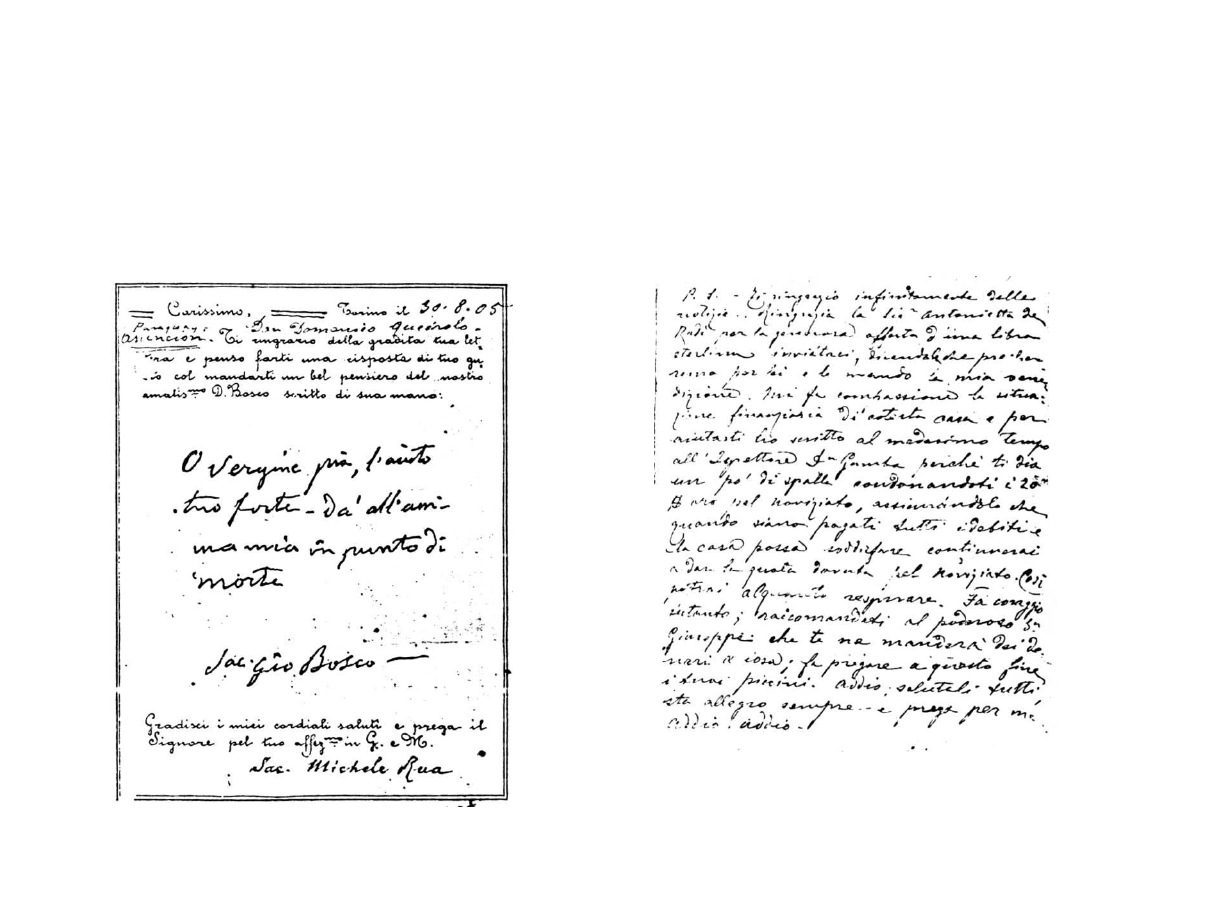 Carissimo, Torino il 30-8-05
Paraguay: Don Domenico Queirolo -
Asuncion. Ti ringrazio della gradita tua let-
tera e penso farti una risposta di tuo gu-
sto col mandarti un bel pensiero del nostro
amatis.mo D. Bosco scritto di sua mano:
O Vergine pia, l'aiuto
tuo forte - Da' all'ani-
ma mia in punto di
morte
Sac. Gio Bosco —
Gradisci i miei cordiali saluti e prega il
Signore pel tuo affez.mo in G. e M.
Sac. Michele Rua
P. S. - Ti ringrazio infinitamente delle
notizie. Ringrazia la Antonietta de
per la generosa offerta d'una libra
sterlina inviataci, dicendole che preghe-
remo per lei e le mando la mia bene
dizione. Mi fa compassione la situa-
zione finanziaria di cotesta casa e per
aiutarti ho scritto al medesimo tempo
all'Ispettore D. Gamba perchè ti dia
un po' di spalla condonandoti i
oro pel noviziato, assicurandolo che
quando siano pagati tutti i debiti e
la casa possa soddisfare continuerai
a dare la quota dovuta pel Noviziato. Così
potrai alquanto respirare. Fa coraggio
intanto; raccomandati al poderoso S.
Giuseppe che te ne manderà dei de
nari a iosa; fa pregare a questo fine
i tuoi piccini. Addio, salutali tutti
sta allegro sempre - e prega per me
addio! addio -